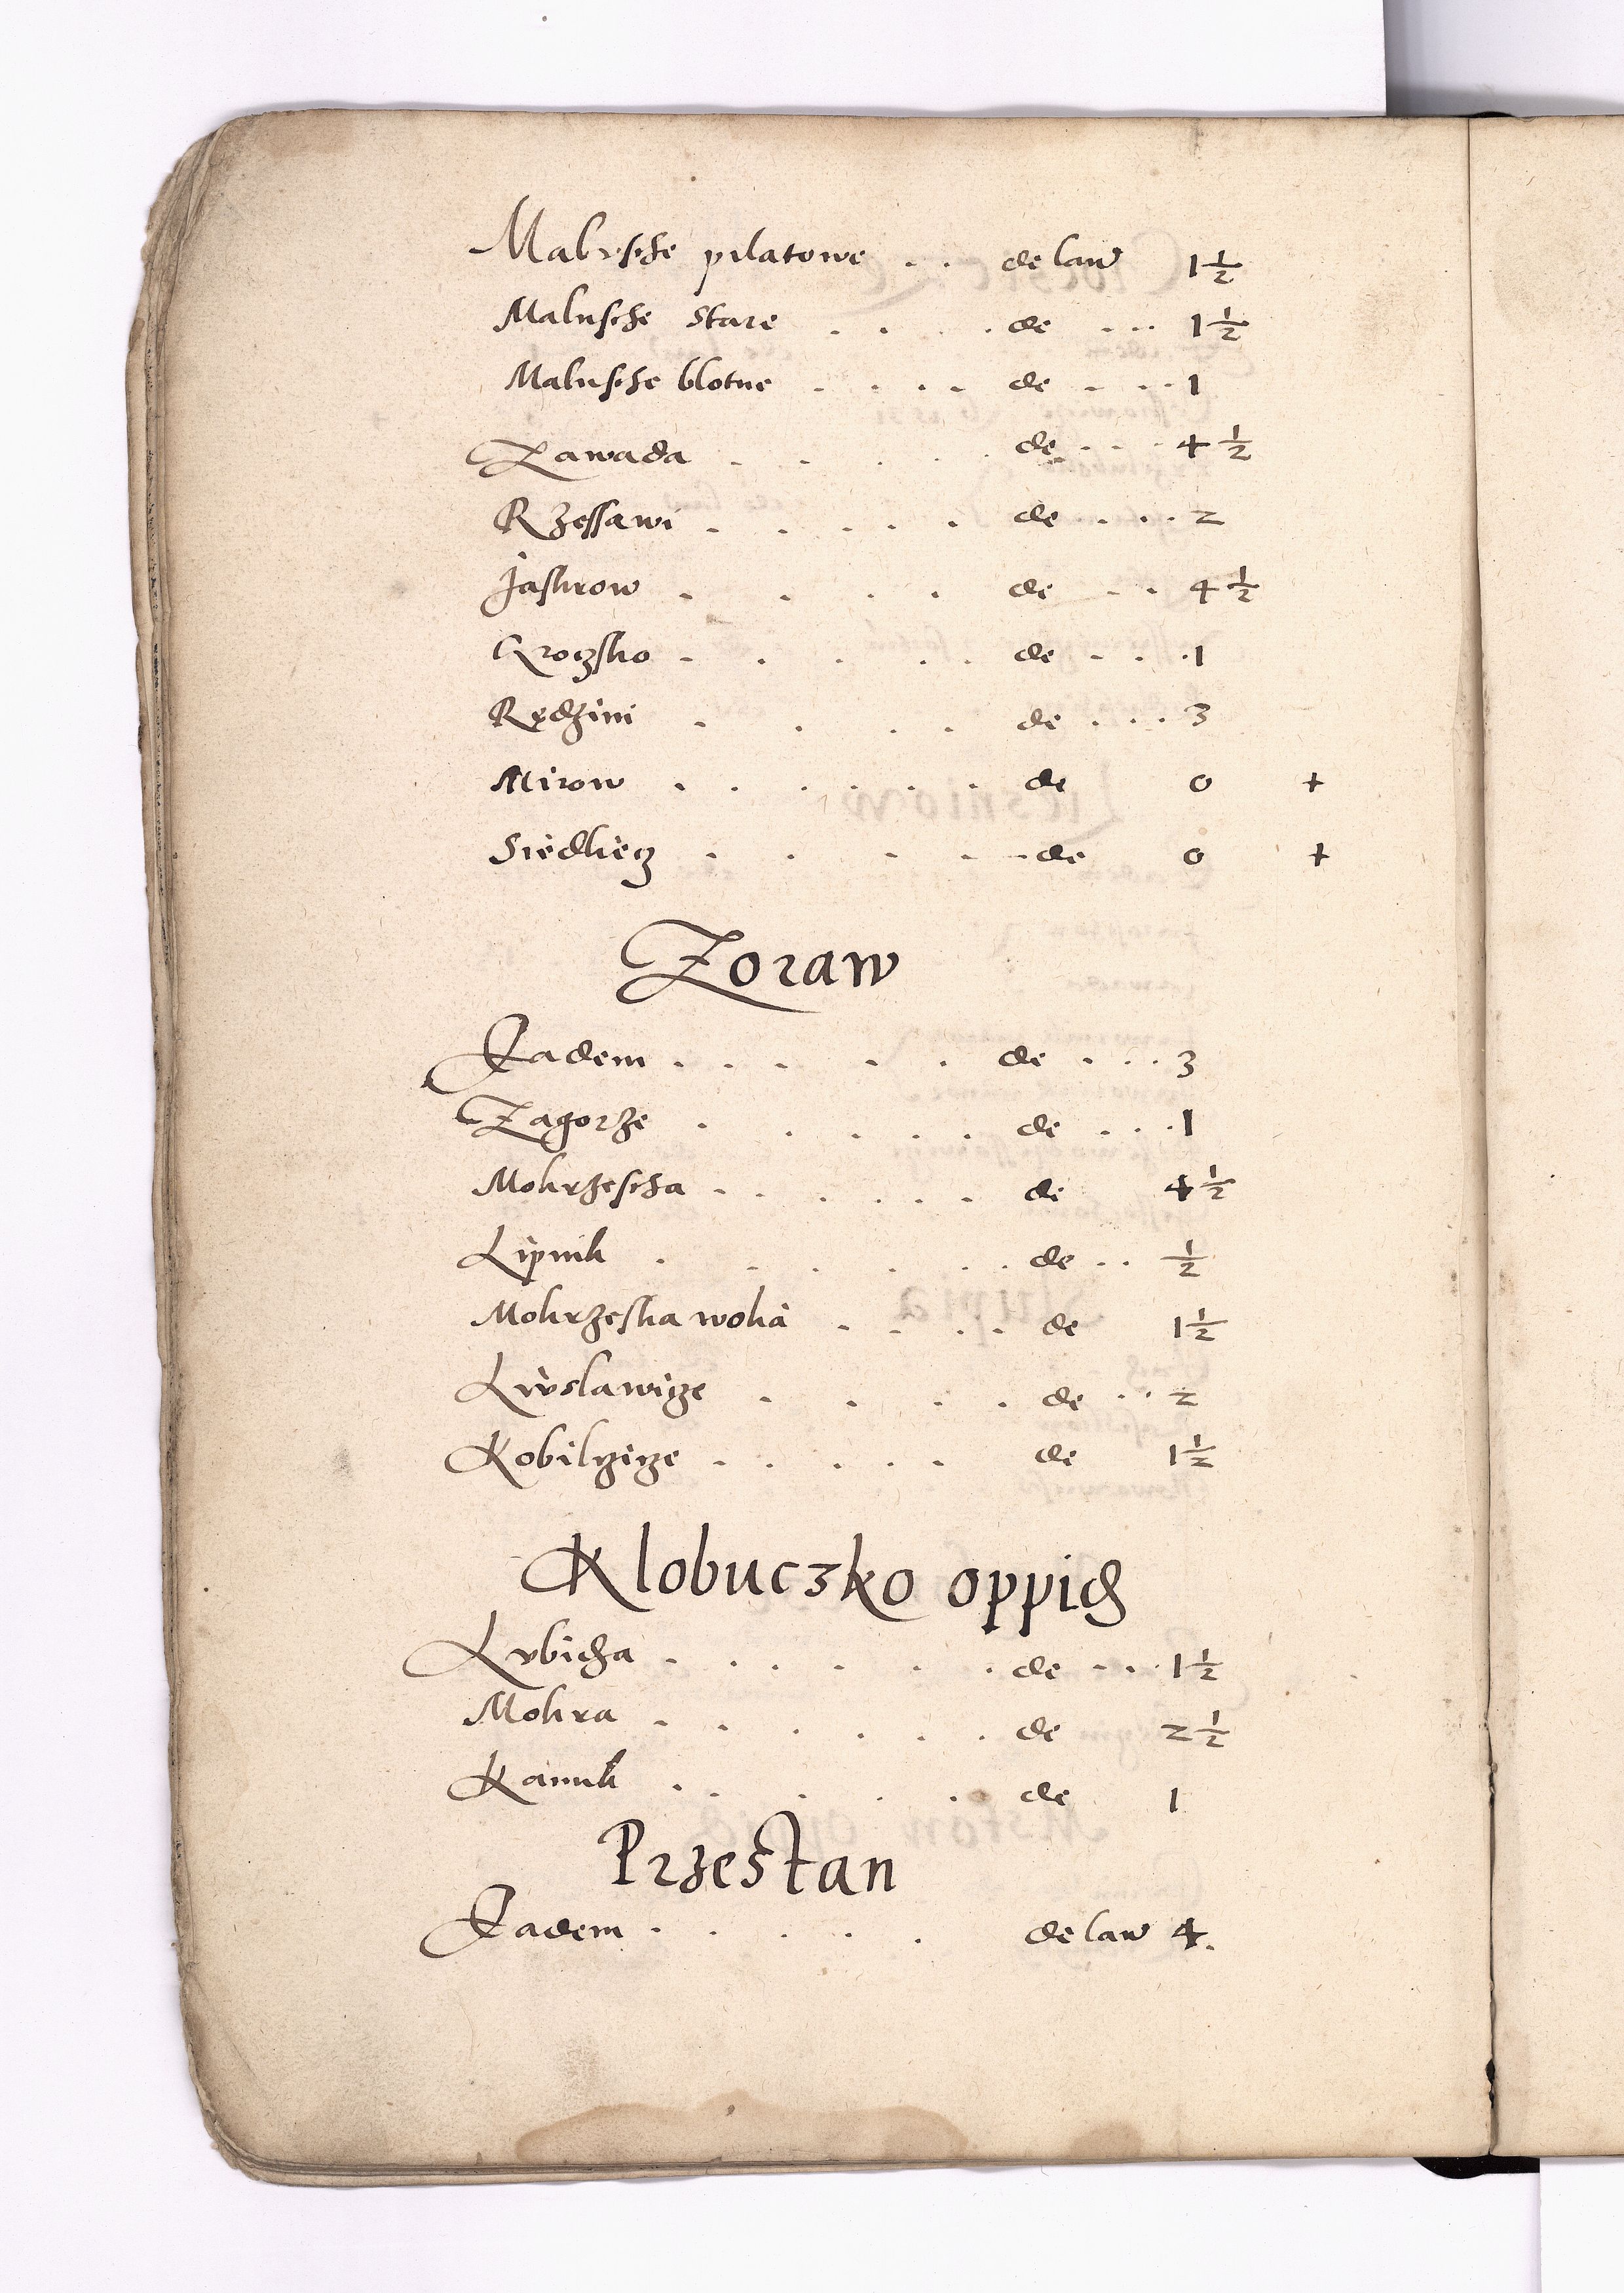 Malusche pilatowe . . de lan 1 1/2
Malusche stare . . . . de . . . 1 1/2
Malusche blotne . . . . de . . . 1
Zawada . . . . . de . . . . 4 1/2
Rzessawi . . . . . de . . . . 2
Jaskrow . . . . de . . 4 1/2
Kroczko . . . . . de . . . 1
Rędzini . . . . de . . . . 3
Mirow . . . . . . de 0 +
Siedliecz . . . . . de 0 +
Zoraw
Eadem . . . . . de . . . . 3
Zagorze . . . . . de . . . . 1
Mokrzescha . . . . . . de 4 1/2
Lipnik . . . . . . de . . 1/2
Mokrzeska wolia . . . . de 1 1/2
Kobilczicze . . . . . de 1 1/2
Klobuczko oppid
Lubicza . . . . . . de . . . 1 1/2
Mokra . . . . . . de 2 1/2
Kamik . . . . de 1
Przestan
Eadem . . . . . de lan 4.